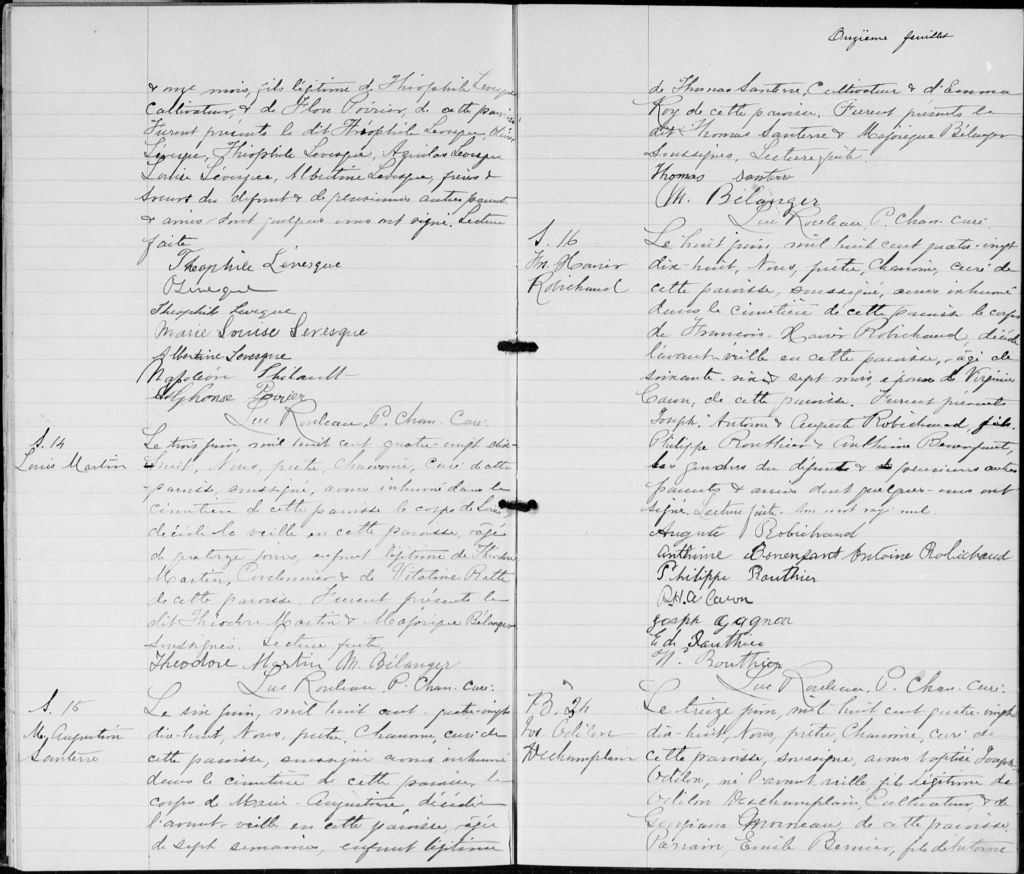 & onze mois, fils légitime de Théophile Levesque
Cultivateur, & de Flore Poirier, de cette paroisse
Furent présents le dit Théophile Levesque,
Lévesque, Théophile Levesque, Aquilas Levesque
Louise Levesque, Albertine Levesque, frères &
sœurs du défunt & de plusieurs autres parents
& amis dont quelques uns ont signé. Lecture
faite
Théophile Lévesque
O Lévesque
Théophile Levêque
Marie Louise Levesque
Albertine Levesque
Napoléon Thibault
Alphonse Poirier
Luc Rouleau, P. Chan. Curé.
S. 14
Louis Martin
Le trois juin, mil huit cent quatre-vingt dix-
huit, Nous, prêtre, Chanoine, curé de cette
paroisse, soussigné, avons inhumé dans le
cimetière de cette paroisse le corps de Louis,
décédé la veille en cette paroisse, âgé
de quatorze jours, enfant légitime de Théodore
Martin, Cordonnier & de Vitaline Ratté
de cette paroisse. Furent présents le
dit Théodore Martin & Majorique Bélanger
soussignés. Lecture faite.
Théodore Martin M. Bélanger
Luc Rouleau, P. Chan. Curé.
S. 15
M. Augustine
Santerre
Le six juin, mil huit cent quatre-vingt
dix-huit, Nous, prêtre, Chanoine, curé de
cette paroisse, soussigné avons inhumé
dans le cimetière de cette paroisse le
corps de Marie-Augustine, décédée
l'avant-veille en cette paroisse, âgée
de sept semaines, enfant légitime
Onzième feuillet
de Thomas Santerre, Cultivateur & d'Emma
Roy de cette paroisse. Furent présents le
dit Thomas Santerre & Majorique Bélanger
soussignés. Lecture faite.
Thomas Santerre
M. Bélanger
Luc Rouleau, P. Chan. curé.
S. 16
Frs. Xavier
Robichaud
Le huit juin, mil huit cent quatre-vingt
dix-huit, Nous, prêtre, Chanoine, curé de
cette paroisse, soussigné, avons inhumé
dans le cimetière de cette paroisse le corps
de François-Xavier Robichaud, décédé
l'avant-veille en cette paroisse, âgé de
soixante- & sept mois, époux de Virginie
Caron, de cette paroisse. Furent présents
Joseph, Antoine & Auguste Robichaud, fils,
Philippe Routhier & Anthime Bonenfant,
gendres du défunt & plusieurs autres
parents & amis dont quelques-uns ont
signé. Lecture faite. Un mot rayé nul
Auguste Robichaud
Anthime Bonenfant Antoine Robichaud
Philippe Routhier
Caron
Joseph Gagnon
Ed. Routhier
N. Routhier
Luc Rouleau, P. Chan. curé.
B. 24
Jos. Odilon
Deschamplain
Le treize juin, mil huit cent quatre-vingt
dix-huit, Nous, prêtre, Chanoine, curé de
cette paroisse, soussigné, avons baptisé Joseph-
Odilon, né l'avant-veille, fils légitime de
Odilon Deschamplain, Cultivateur, & de
Georgiana Morneau, de cette paroisse.
Parrain, Emile Bernier, fils d'Antoine